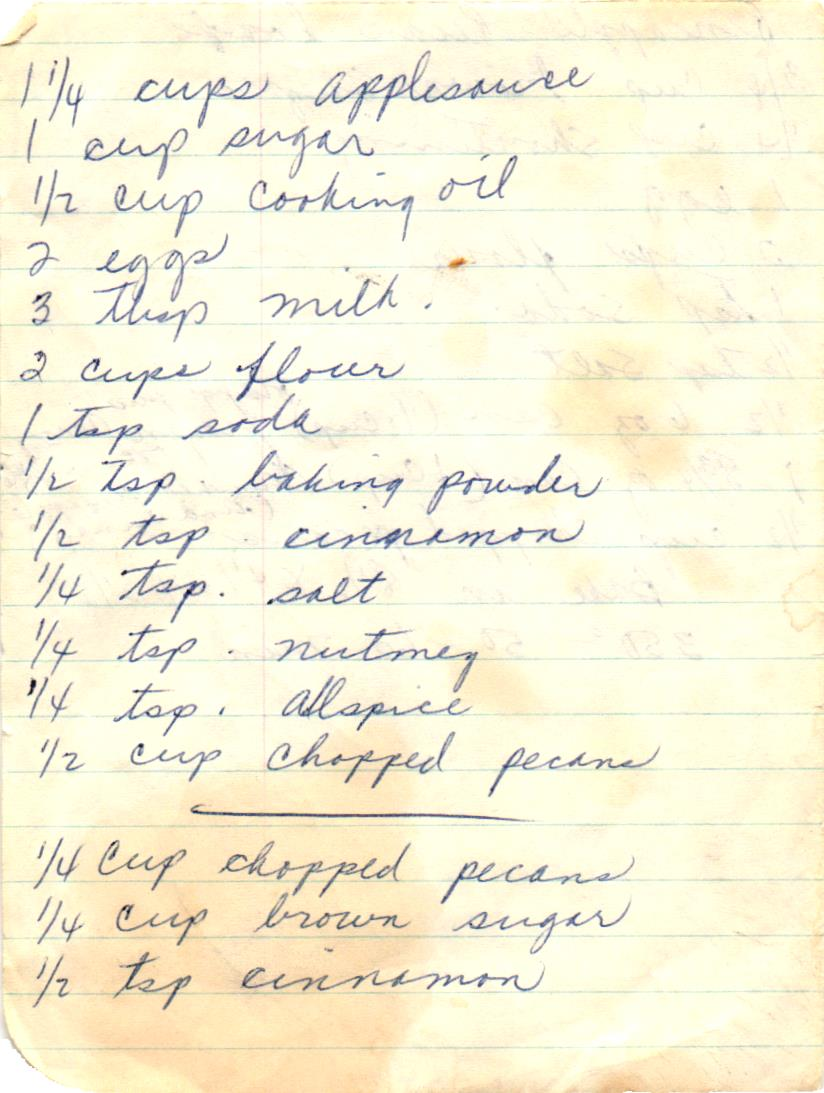 1 1/4 cups applesauce
1 cup sugar
1/2 cup cooking oil
2 eggs
3 tbsp milk.
2 cups flour
1 tsp soda
1/2 tsp. baking powder
1/2 tsp. cinnamon
1/4 tsp. salt
1/4 tsp. nutmeg
1/4 tsp. Allspice
1/2 cup chopped pecans
1/4 cup chopped pecans
1/4 cup brown sugar
1/2 tsp cinnamon